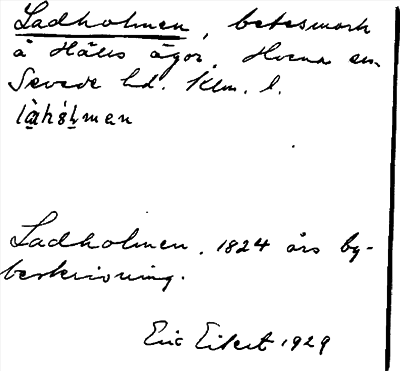 Ladholmen, betesmark
å Hälls ägor. Hvena sn.
Sevede hd. Klm. l.
Ladholmen. 1824 års by-
beskrivning.
Eric Eilert 1929